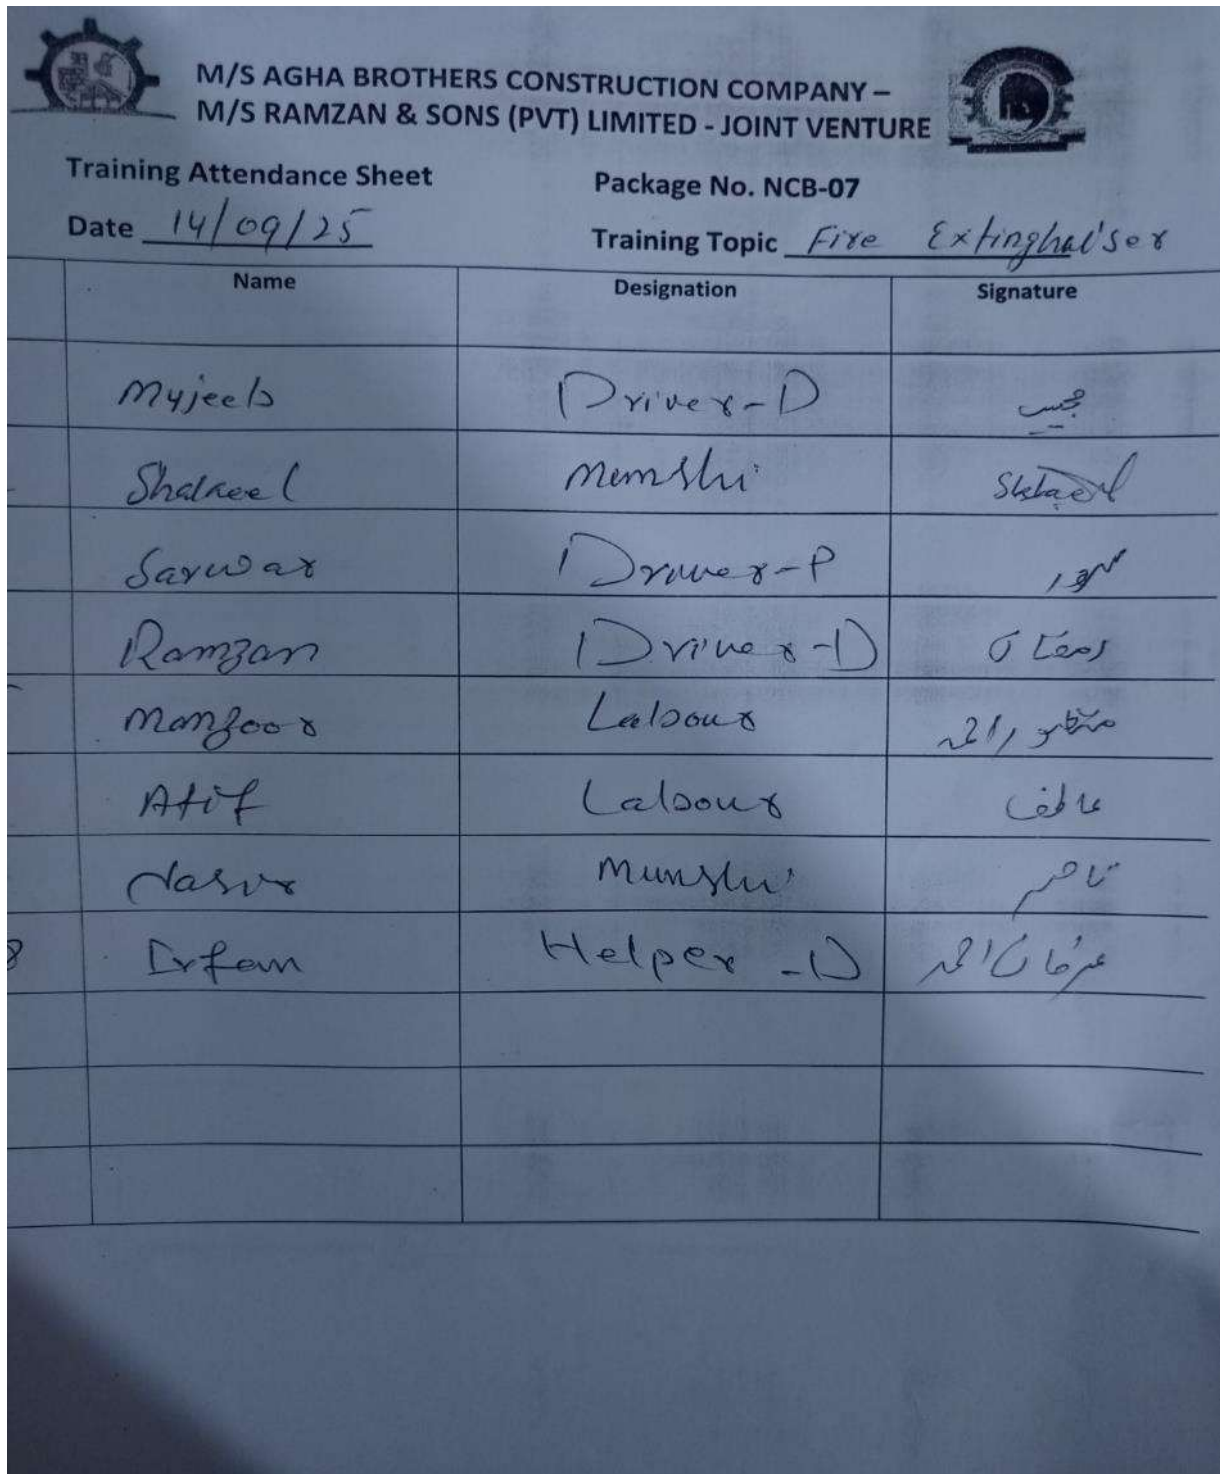 M/S AGHA BROTHERS CONSTRUCTION COMPANY –
M/S RAMZAN & SONS (PVT) LIMITED - JOINT VENTURE
Training Attendance Sheet
Package No. NCB-07
Date 14/09/25
Training Topic Fire Extinghai'ser
Name Designation Signature
Mujeeb Driver-D مجیب
Shakeel Munshi Shakeel
Sarwar Driver-P سرور
Ramzan Driver-D رمضان
Manzoor Labour منظور احمد
Atif Labour عاطف
Nasir Munshi ناصر
8 Irfan Helper-D عرفان احمد